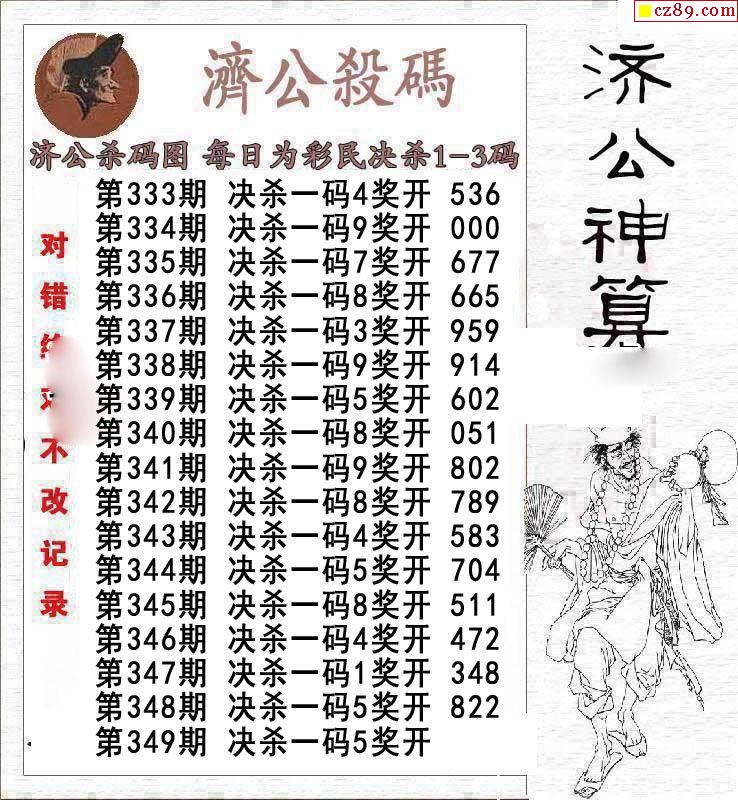 cz89.com
濟公殺碼
济公杀码图 每日为彩民决杀1-3码
第333期 决杀一码4奖开 536
第334期 决杀一码9奖开 000
第335期 决杀一码7奖开 677
第336期 决杀一码8奖开 665
第337期 决杀一码3奖开 959
第338期 决杀一码9奖开 914
第339期 决杀一码5奖开 602
第340期 决杀一码8奖开 051
第341期 决杀一码9奖开 802
第342期 决杀一码8奖开 789
第343期 决杀一码4奖开 583
第344期 决杀一码5奖开 704
第345期 决杀一码8奖开 511
第346期 决杀一码4奖开 472
第347期 决杀一码1奖开 348
第348期 决杀一码5奖开 822
第349期 决杀一码5奖开
对错不改记录
济公神算